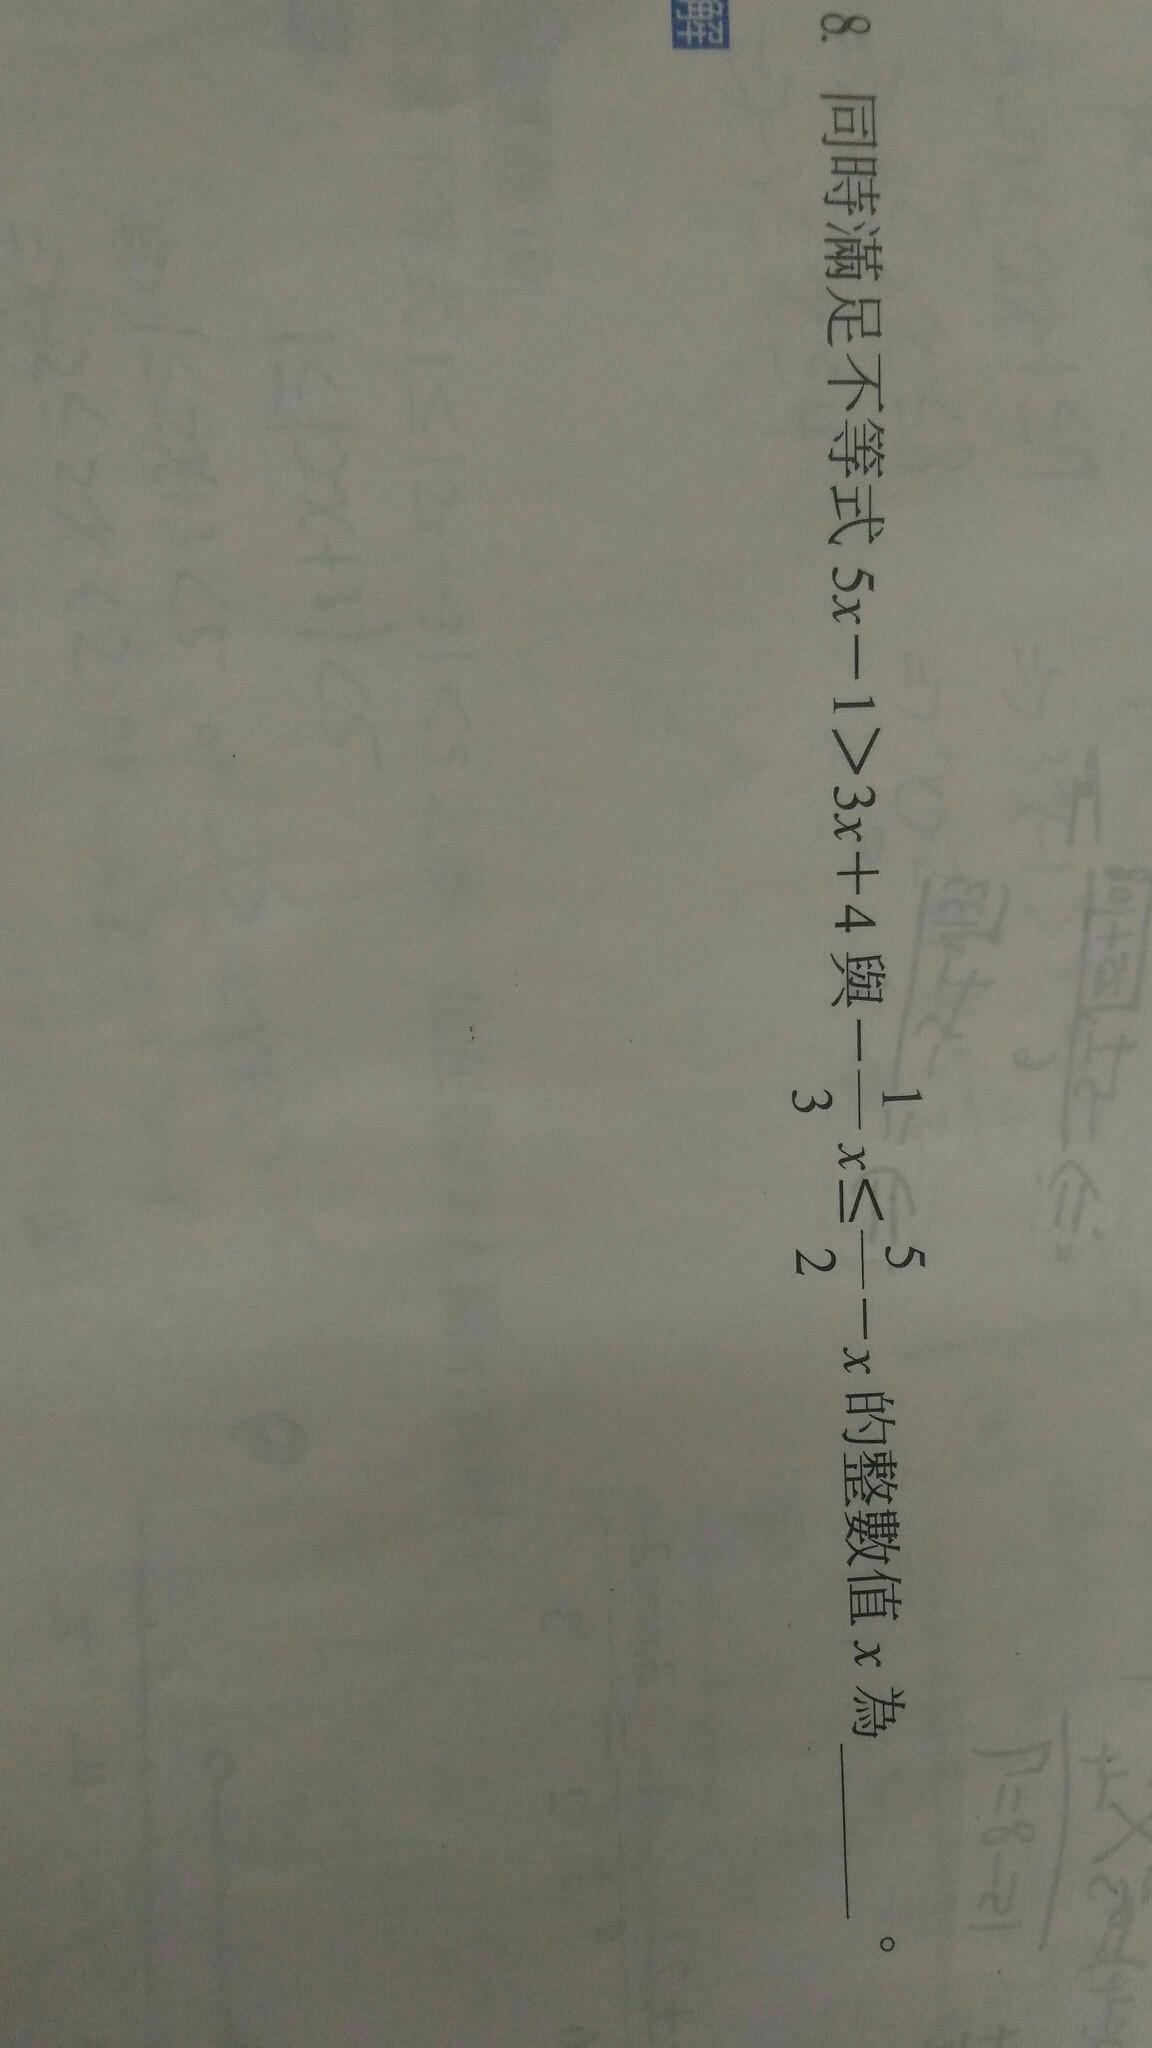 8. 同時滿足不等式 5x－1＞3x＋4 與 －1/3 x≤5/2－x 的整數值 x 為______。
解